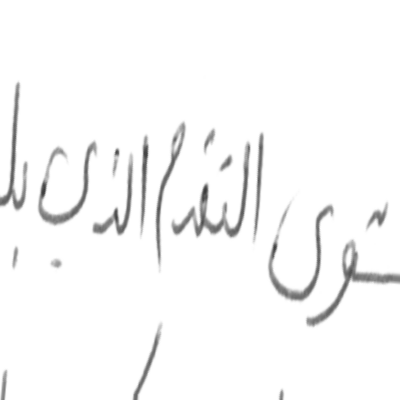 ستوى التقدم الذي بلـ